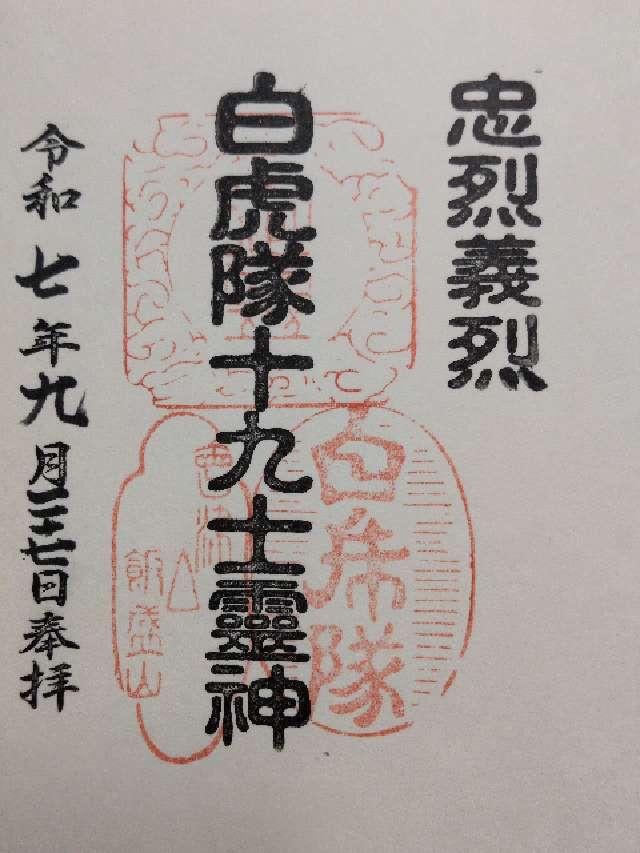 忠烈義烈
白虎隊十九士靈神
令和七年九月二十七日奉拝
白虎隊
會津
飯盛山